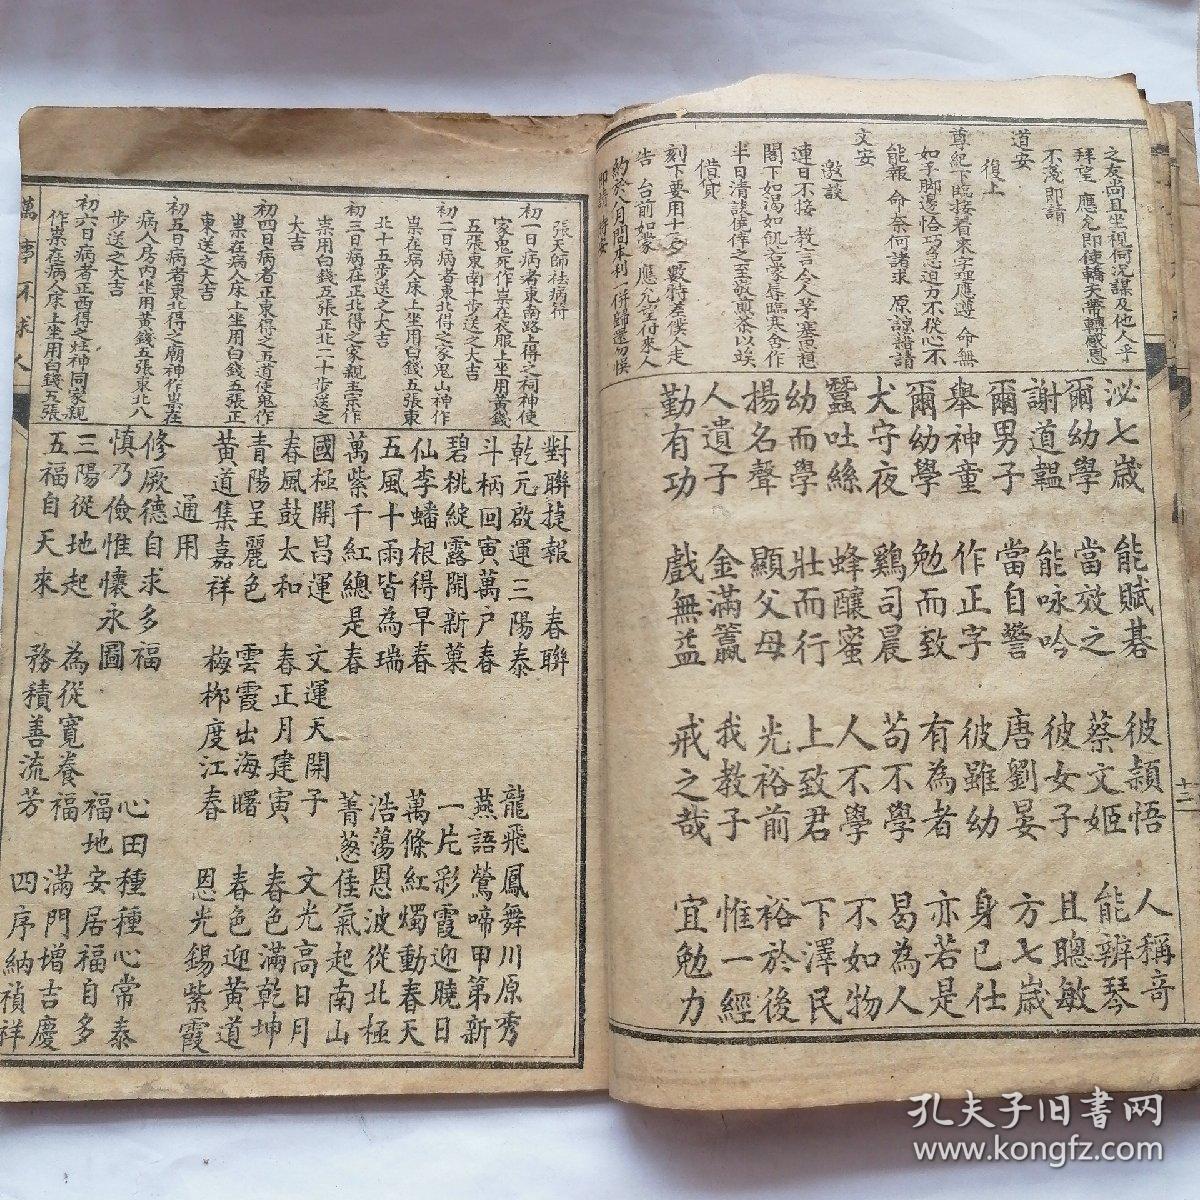 之友尚且坐視何況謀及他人乎
拜望 應允即使轎夫帶轉感恩
不淺即請
道安
復上
尊紀下臨接看來字理應遵 命無
如手腳邊恰巧急迫力不從心不
能報 命奈何諸求 原諒諸請
文安
邀談
連日不接 教言令人茅塞思想
閣下如渴如飢若蒙辱臨寒舍作
半日清談僥倖之至敬煎茶以埃
借貸
刻下要用十元之數特差僕人走
告 台前如蒙 應允望付來人
約於八月間本利一併歸還勿悞
泌七歲 能賦碁 彼穎悟 人稱奇
爾幼學 當效之 蔡文姬 能辨琴
謝道韞 能咏吟 彼女子 且聰敏
爾男子 當自警 唐劉晏 方七歲
舉神童 作正字 彼雖幼 身已仕
爾幼學 勉而致 有為者 亦若是
犬守夜 鷄司晨 苟不學 曷為人
蠶吐絲 蜂釀蜜 人不學 不如物
幼而學 壯而行 上致君 下澤民
揚名聲 顯父母 光裕前 裕於後
人遺子 金滿籯 我教子 惟一經
勤有功 戲無益 戒之哉 宜勉力
十二
張天師祛病符
初一日病者東南路上得之祠神使
家鬼死作祟在衣服上坐用黃錢
五張東南十步送之大吉
初二日病者東北得之家鬼山神作
祟在病人床上坐用白錢五張東
北十五步送之大吉
初三日病在正北得之家親主宗作
祟用白錢五張正北二十步送之
大吉
初四日病者正東得之五道使鬼作
祟在病人床上坐用白錢五張正
東送之大吉
初五日病者東北得之廟神作祟在
病人房內坐用黃錢五張東北八
步送之大吉
初六日病者正西得之灶神同家親
作祟在病人床上坐用白錢五張
對聯捷報 春聯
乾元啟運三陽泰 龍飛鳳舞川原秀
斗柄回寅萬戶春 燕語鶯啼甲第新
碧桃綻露開新菓 一片彩霞迎曉日
仙李蟠根得早春 萬條紅燭動春天
五風十雨皆為瑞 浩蕩恩波從北極
萬紫千紅總是春 菁葱佳氣起南山
國極開昌運 文運天開子 文光高日月
春風鼓太和 春正月建寅 春色滿乾坤
青陽呈麗色 雲霞出海曙 春色迎黃道
黃道集嘉祥 梅栁度江春 恩光錫紫霞
通用
修厥德自求多福 心田種種心常泰
慎乃儉惟懷永圖 福地安居福自多
三陽從地起 為從寬養福 滿門增吉慶
五福自天來 務積善流芳 四序納禎祥
萬事不求人
孔夫子旧書网
www.kongfz.com